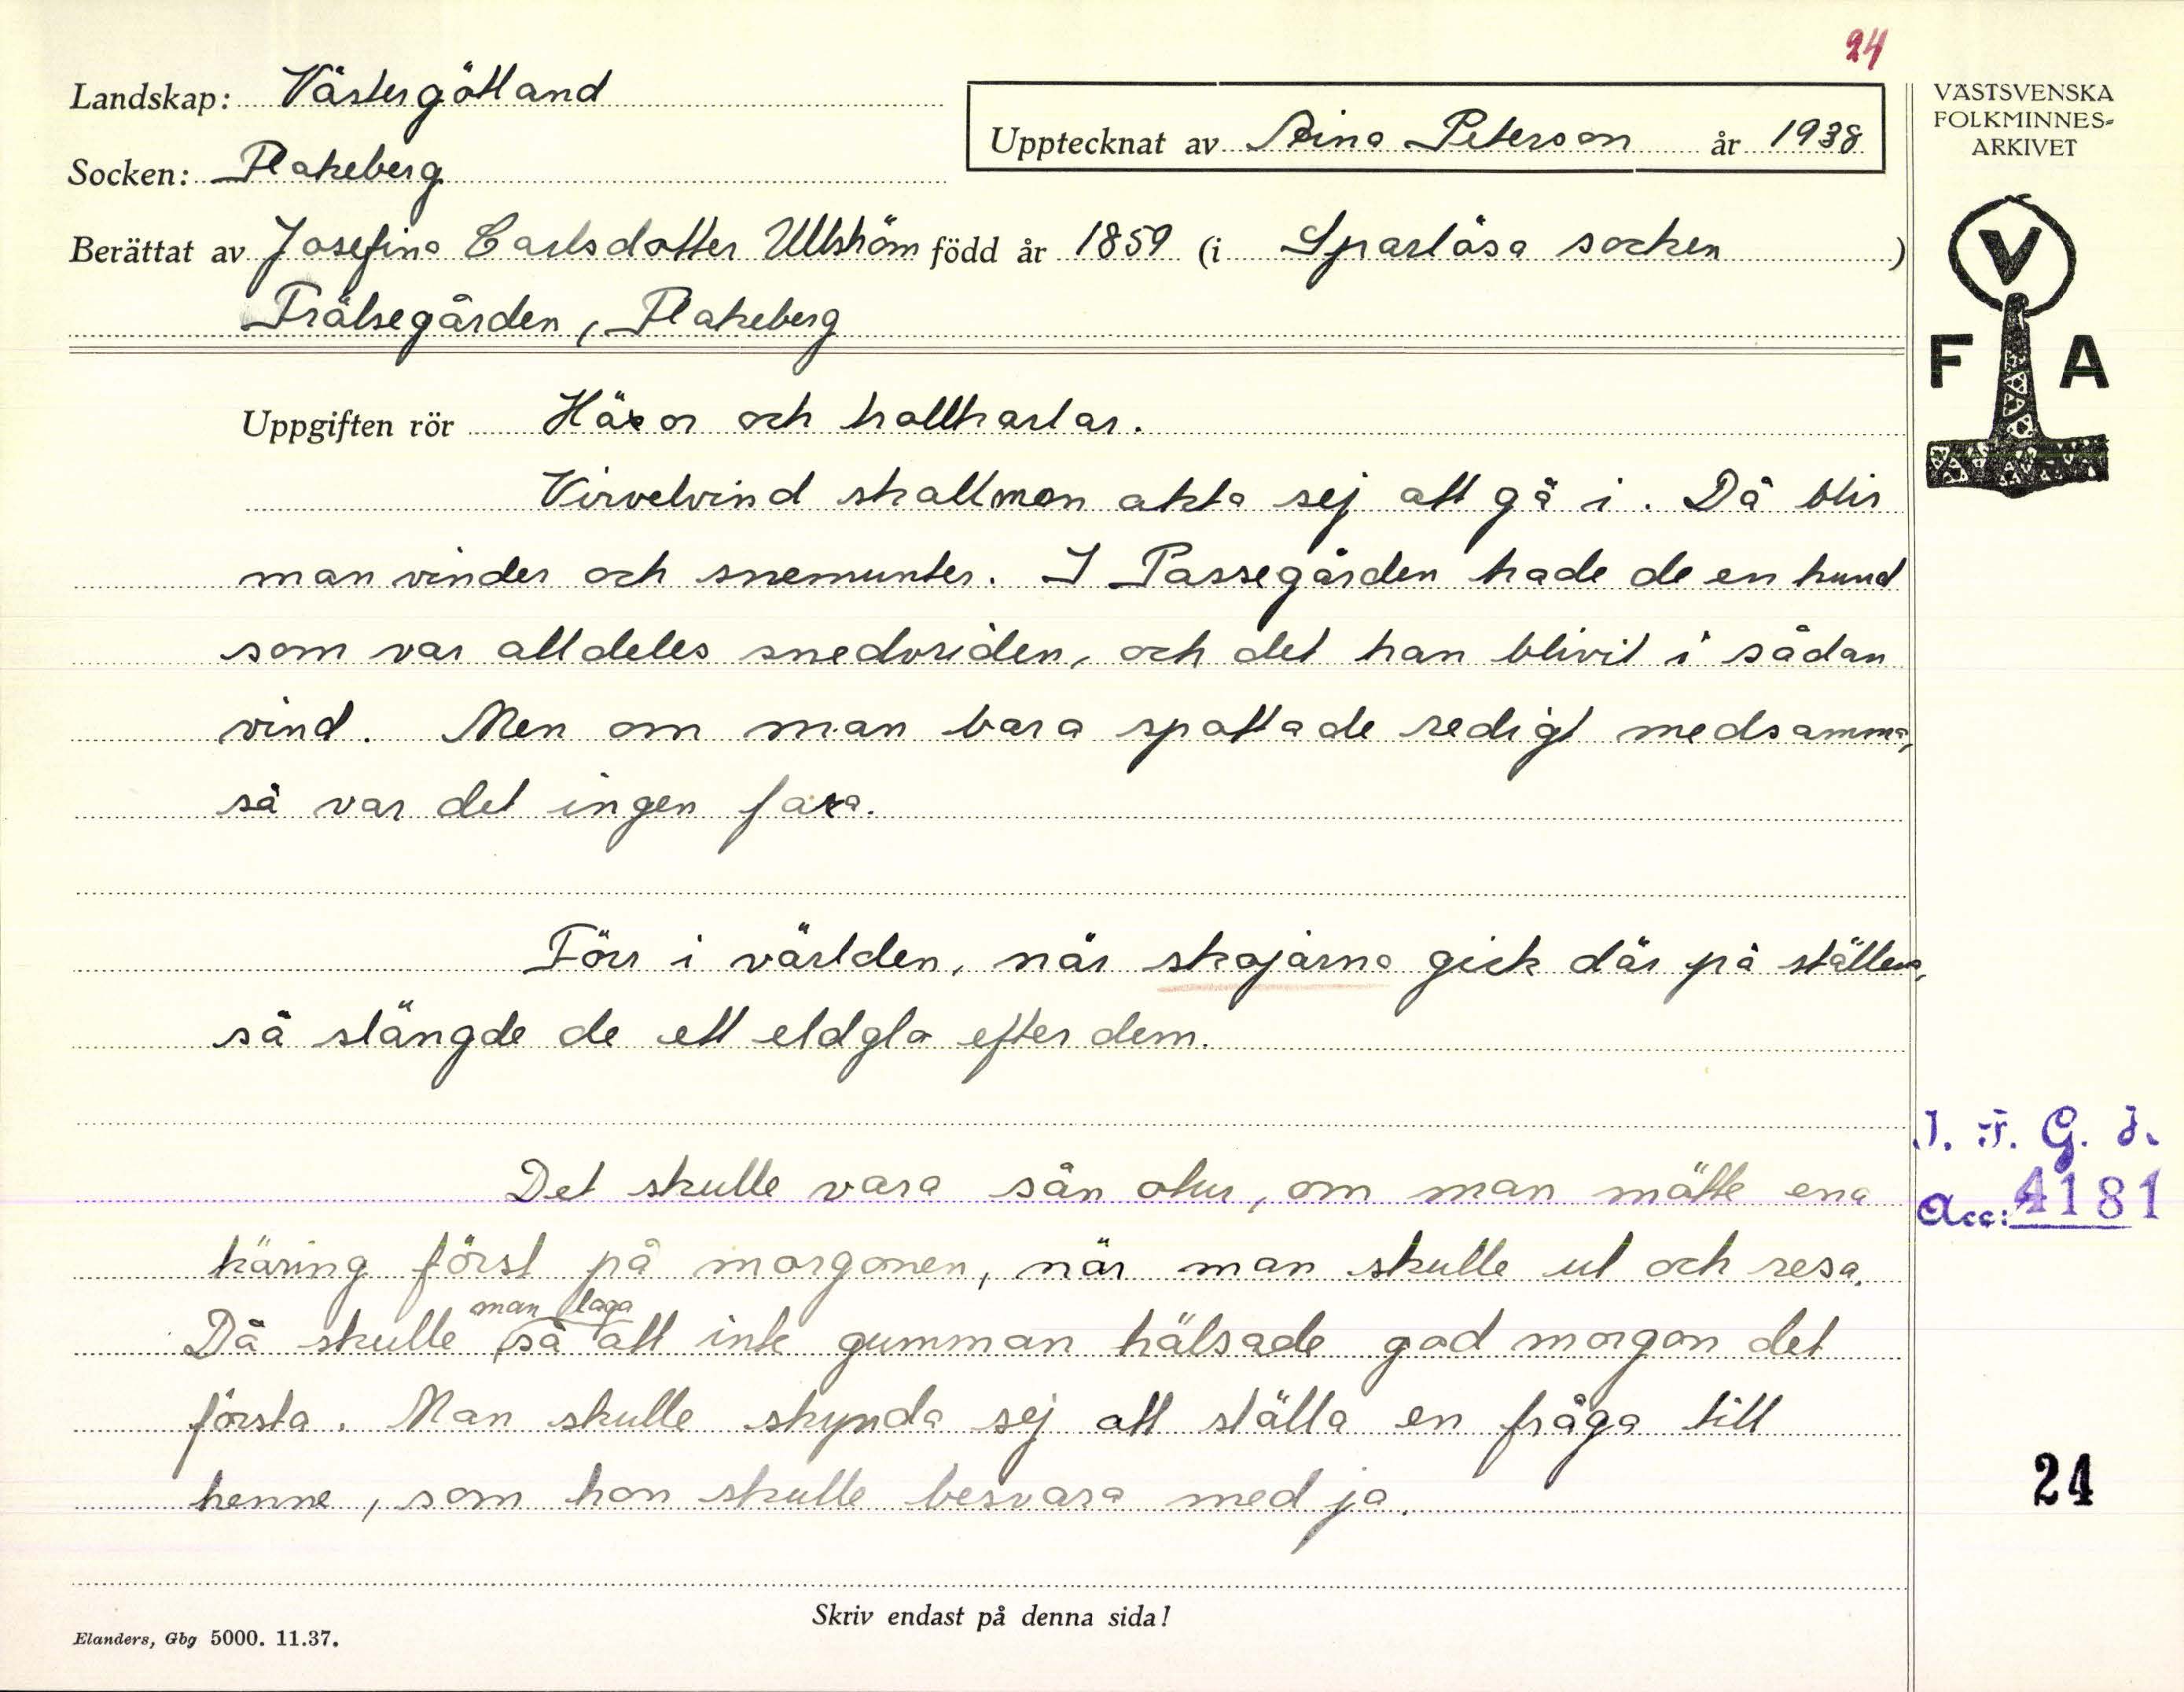 24
Landskap: Västergötland
Upptecknat av Stina Peterson år 1938
VÄSTSVENSKA
FOLKMINNES-
ARKIVET
Socken: Flakeberg
Berättat av Josefina Carlsdotter Ullström född år 1859 (i Sparlösa socken)
Frälsegården, Flakeberg
V
F A
Uppgiften rör Häxor och trollkarlar.
Virvelvind skall man akta sej att gå i. Då blir
man vinder och snemunter. I Passegården hade de en hund
som var alldeles snedvriden, och det han blivit i sådan
vind. Men om man bara spottade redigt medsamma,
så var det ingen fara.
Förr i världen, när skojarna gick där på ställena,
så slängde de ett eldgla efter dem.
Det skulle vara sån otur, om man mötte ena
käring först på morgonen, när man skulle ut och resa.
Då skulle man laga så att inte gumman hälsade god morgon det
första. Man skulle skynda sej att ställa en fråga till
henne, som hon skulle besvara med ja.
I. F. G. H.
Acc: 4181
24
Skriv endast på denna sida!
Elanders, Gbg 5000. 11.37.